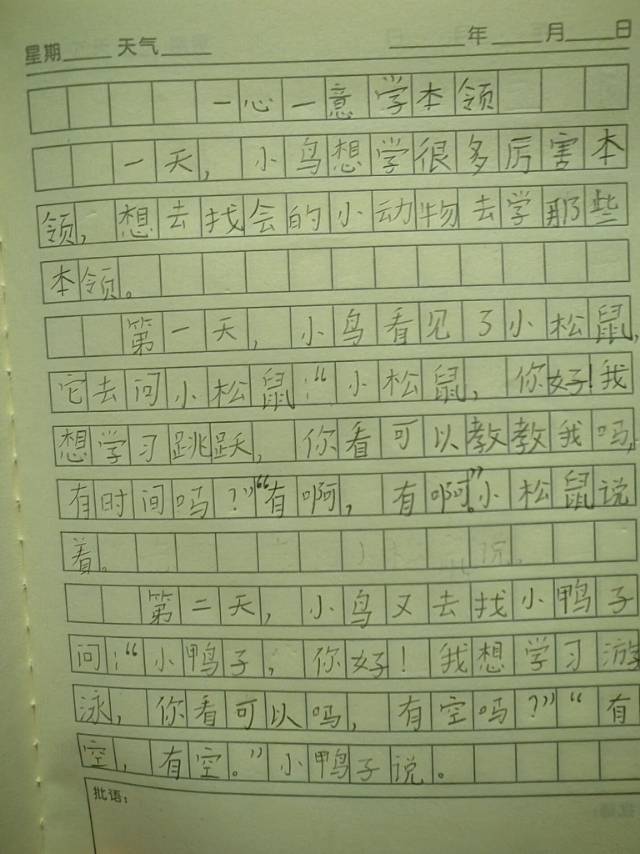 星期____天气____ ______年____月____日
一心一意学本领
一天，小鸟想学很多厉害本
领，想去找会的小动物去学那些
本领。
第一天，小鸟看见了小松鼠，
它去问小松鼠：“小松鼠，你好！我
想学习跳跃，你看可以教教我吗，
有时间吗？”“有啊，有啊。”小松鼠说
着。
第二天，小鸟又去找小鸭子
问：“小鸭子，你好！我想学习游
泳，你看可以吗，有空吗？”“有
空，有空。”小鸭子说。
批语：